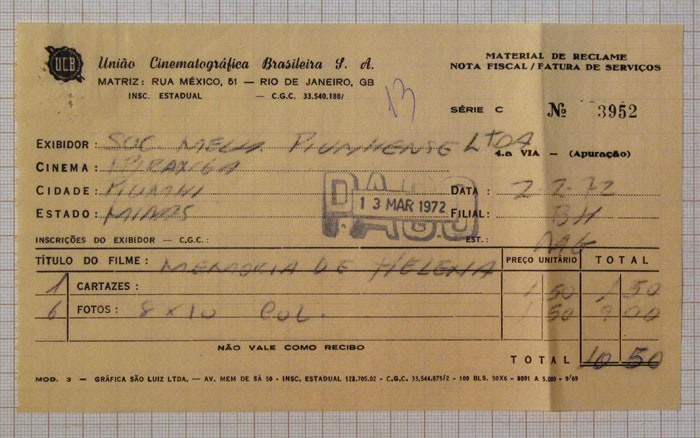 UCB
União Cinematográfica Brasileira S. A.
MATRIZ: RUA MÉXICO, 51 — RIO DE JANEIRO, GB
INSC. ESTADUAL — C.G.C. 33.540.188/
MATERIAL DE RECLAME
NOTA FISCAL/FATURA DE SERVIÇOS
13
SÉRIE C Nº 3952
EXIBIDOR: SOC MELL PIUMHENSE LTDA
4.a VIA — (Apuração)
CINEMA: IPIRANGA
CIDADE: PIUMHI DATA: 2-2-72
ESTADO: MINAS FILIAL: BH
PAGO
13 MAR 1972
INSCRIÇÕES DO EXIBIDOR — C.G.C.: EST.: MG
TÍTULO DO FILME: MEMORIA DE HELENA PREÇO UNITÁRIO TOTAL
1 CARTAZES: 1 50 1 50
6 FOTOS: 8x10 COL. 1 50 9 00
NÃO VALE COMO RECIBO
TOTAL 10 50
MOD. 3 — GRÁFICA SÃO LUIZ LTDA. — AV. MEM DE SÁ 50 - INSC. ESTADUAL 122.705.02 - C.G.C. 33.544.875/2 - 100 BLS. 50X6 - 8091 A 5.000 - 9/69